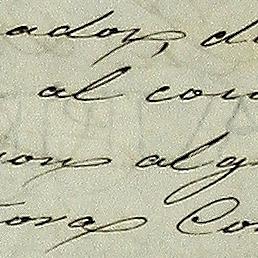 ador, d
al con
on alg
tora Co